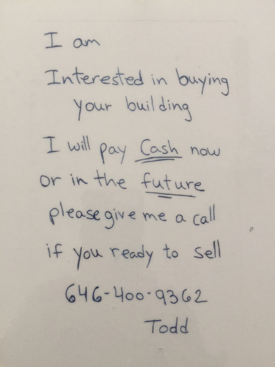 I am
Interested in buying
your building
I will pay Cash now
or in the future
please give me a call
if you ready to sell
646-400-9362
Todd